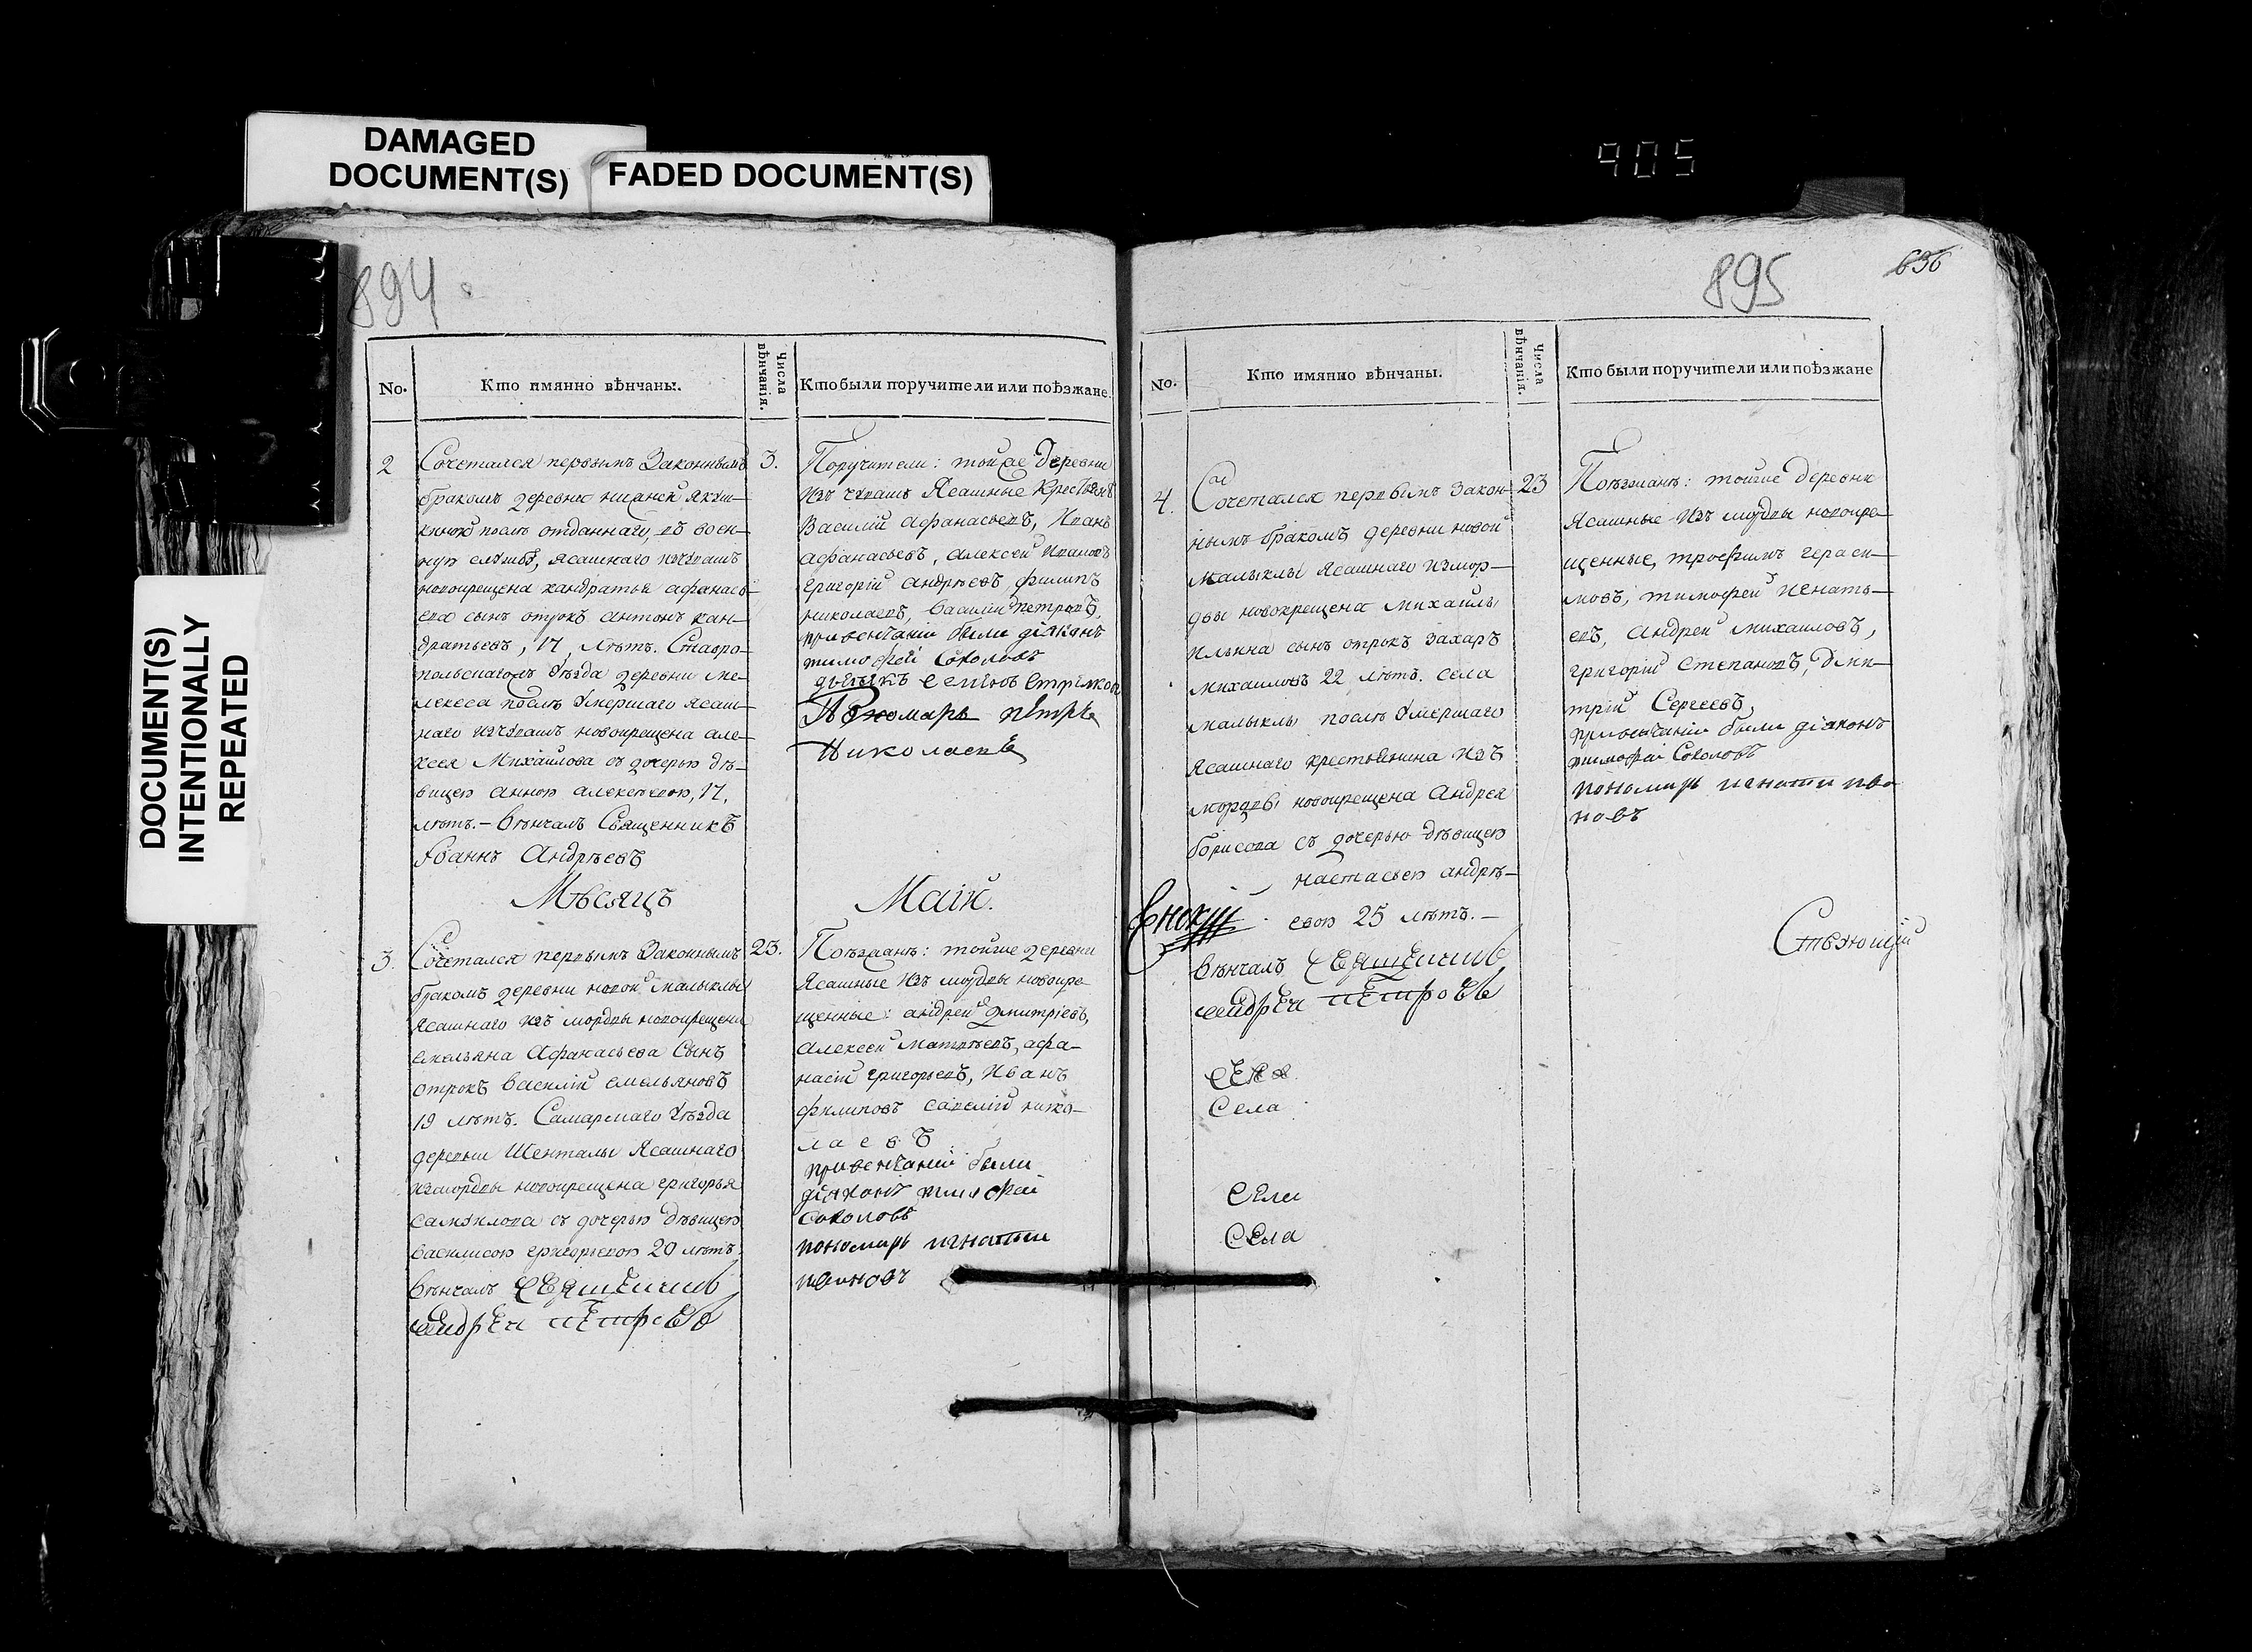 DAMAGED
DOCUMENT(S)
FADED DOCUMENT(S)
DOCUMENT(S)
INTENTIONALLY
REPEATED
905
894
No.
Кто имянно вѣнчаны.
Числа вѣнчанія.
Кто были поручители или поѣзжане.
2
Сочетался первымъ Законнымъ
бракомъ деревни
послѣ отданнаго въ воен-
ную службу, ясашнаго изчувашъ
новокрещена кандратья афанась-
ева сынъ отрокъ антонъ кан-
дратьевъ, 17, лѣтъ. Ставро-
польскагожъ уѣзда деревни ме-
лекеса послѣ умершаго ясаш-
наго изчувашъ новокрещена але-
ксея Михайлова съ дочерью дѣ-
вицею анною алексѣевою, 17,
лѣтъ. - Вѣнчалъ Священникъ
Іоаннъ Андрѣевъ
3.
Поручители: тойже деревни
изъ чувашъ Ясашные крестьянѣ
Василий афанасьевъ, Иванъ
афанасьевъ, алексей Ивановъ
григорій андрѣевъ, филипъ
николаевъ, василий петровъ,
привенчаніи были діаконъ
тимофей Соколовъ
дьячекъ
Пономарь петръ
Николаевъ
Мѣсяцъ
Маій.
3.
Сочетался первымъ Законнымъ
бракомъ деревни новой малыклы
ясашнаго изъ мордвы новокрещена
емельяна Афанасьева Сынъ
отрокъ Василій емельяновъ
19 лѣтъ. Самарскаго уѣзда
деревни Шенталы Ясашнаго
измордвы новокрещена григорья
самойлова съ дочерью дѣвицею
василисою григорьевою 20 лѣтъ.
Вѣнчалъ священикъ
андрей петровъ
23.
Поѣзжанѣ: тойже деревни
Ясашные изъ мордвы новокре-
щенные: андрей дмитріевъ,
алексей Матвѣевъ, афа-
насій григорьевъ, Иванъ
филиповъ савелій нико-
лаевъ
привенчаніи были
діяконъ тимофей
Соколовъ
пономарь игнатий
ивановъ
895
636
No.
Кто имянно вѣнчаны.
Числа вѣнчанія.
Кто были поручители или поѣзжане
4.
Сочетался первымъ Закон-
нымъ бракомъ деревни новой
малыклы ясашнаго измор-
двы новокрещена михайлы
ильина сынъ отрокъ захаръ
михаиловъ 22 лѣтъ. села
малыклы послѣ умершаго
ясашнаго крестьянина изъ
мордвы новокрещена андрея
борисова съ дочерью дѣвицею
настасьею андрѣ-
евою 25 лѣтъ. -
вѣнчалъ священикъ
андрей петровъ
23
Поѣзжанѣ: тойже деревни
ясашные изъ мордвы новокре-
щенные, трофимъ гераси-
мовъ, тимофей игнать-
евъ, андрей михаиловъ,
григорій степановъ, дми-
трій Сергеевъ,
привенчаніи были діяконъ
тимофей Соколовъ
пономарь игнатий ива
новъ
Села
Села
Села